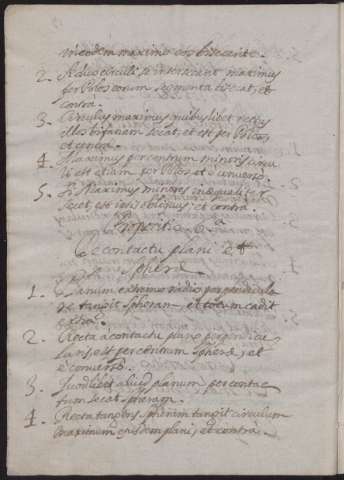 in eodem maximo orbe secante.
2. Si duo circuli se intersecent maximus
per Polos eorum segmenta bisecat, et
contra.
3. Circulus maximus quibuslibet rectus
illos bifariam secat, et est per Polos,
et contra.
4. Maximus per centrum minoris circu
li est etiam per Polos et e converso.
5. Si Maximus minores inaequaliter
secet, est iis obliquus et contra
Propositio 6.a
De contactu plani et
Spherae
1. Planum extremo radio perpendicula
re tangit spheram, et totum cadit
extra.
2. Recta a contactu plano perpendicu
laris est per centrum spherae, et
e converso.
3. Quodlibet aliud planum per contac
tum secat spheram.
4. Recta tangens spheram tangit circulum
maximum ejusdem plani, et contra.